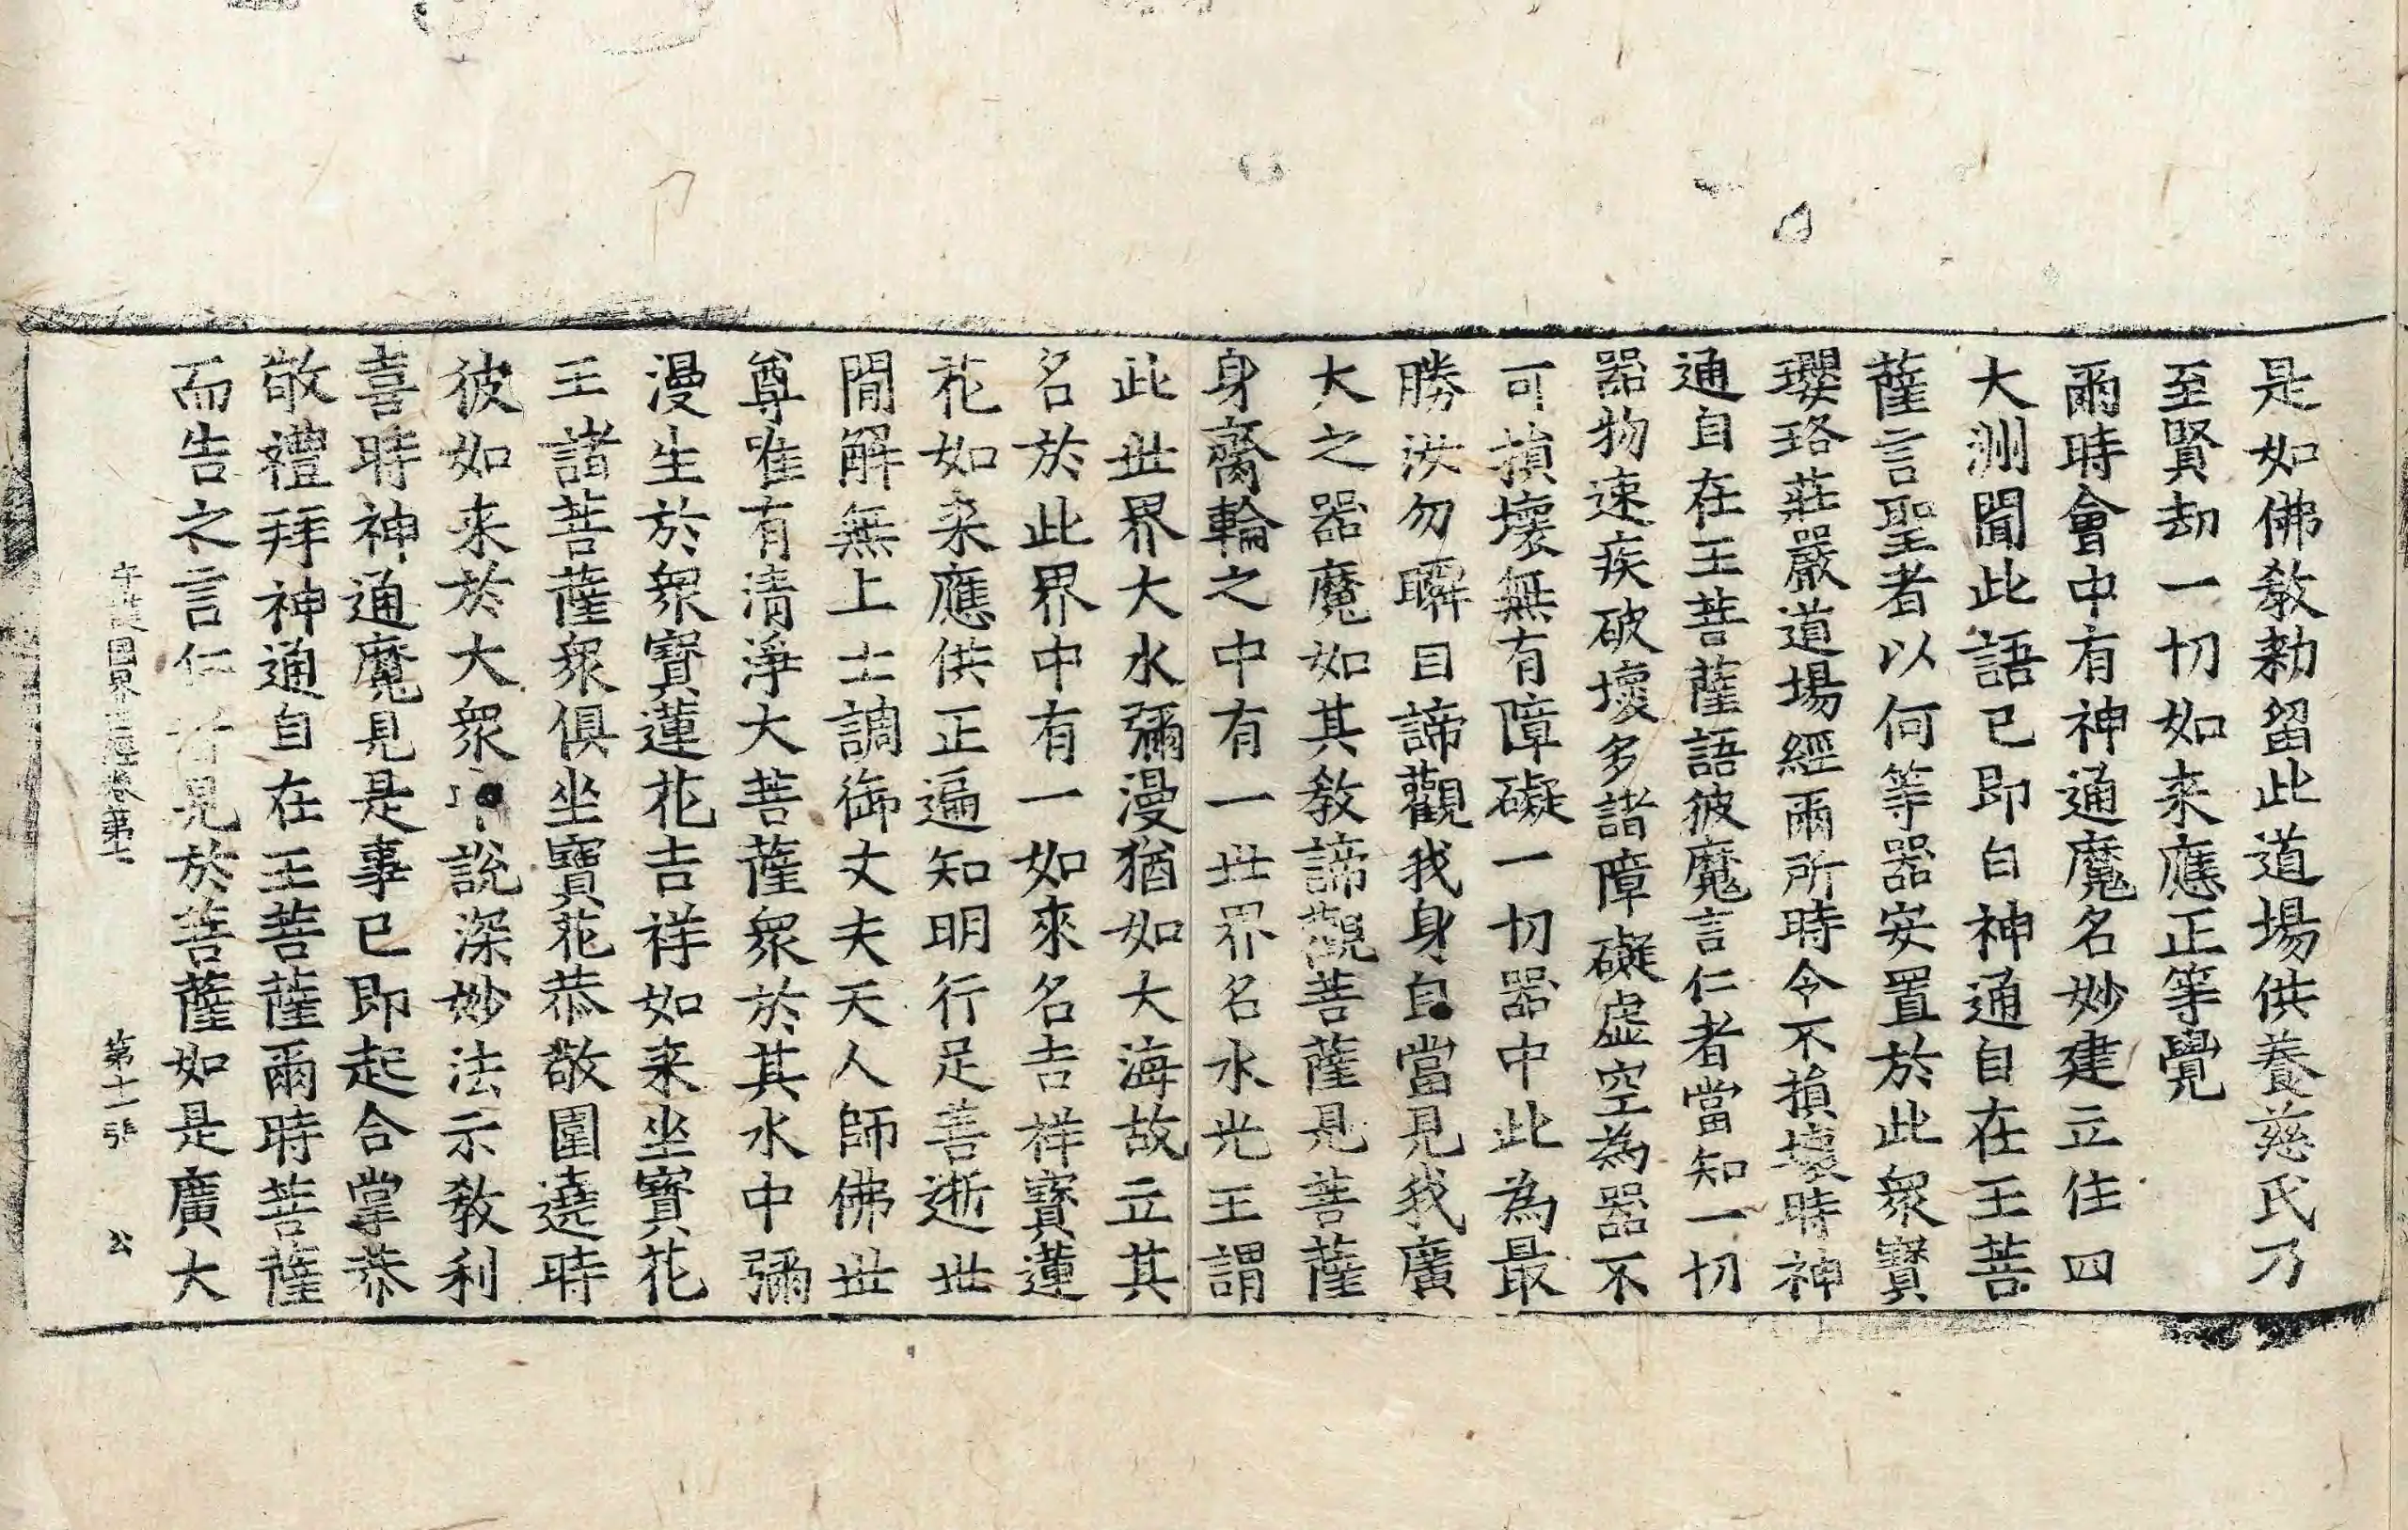 是如佛教勑留此道場供養慈氏乃
至賢劫一切如来應正等覺
爾時會中有神通魔名妙建立住四
大洲聞此語已即白神通自在王菩
薩言聖者以何等器安置於此衆寶
瓔珞莊嚴道場經爾所時令不損壞時神
通自在王菩薩語彼魔言仁者當知一切
器物速疾破壞多諸障礙虛空為器不
可損壞無有障礙一切器中此為最
勝汝勿瞬目諦觀我身自當見我廣
大之器魔如其教諦觀菩薩是菩薩
身齎輪之中有一世界名水光王謂
此世界大水彌漫猶如大海故立其
名於此界中有一如來名吉祥寶蓮
花如来應供正遍知明行足善逝世
間解無上士調御丈夫天人師佛世
尊唯有清淨大菩薩衆於其水中彌
漫生於衆寶蓮花吉祥如来坐寶花
王諸菩薩衆俱坐寶花恭敬圍遶時
彼如来於大衆中說深妙法示教利
喜時神通魔見是事已即起合掌恭
敬禮拜神通自在王菩薩爾時菩薩
而告之言仁者見於菩薩如是廣大
守護國界主經卷第十 第十一張 公